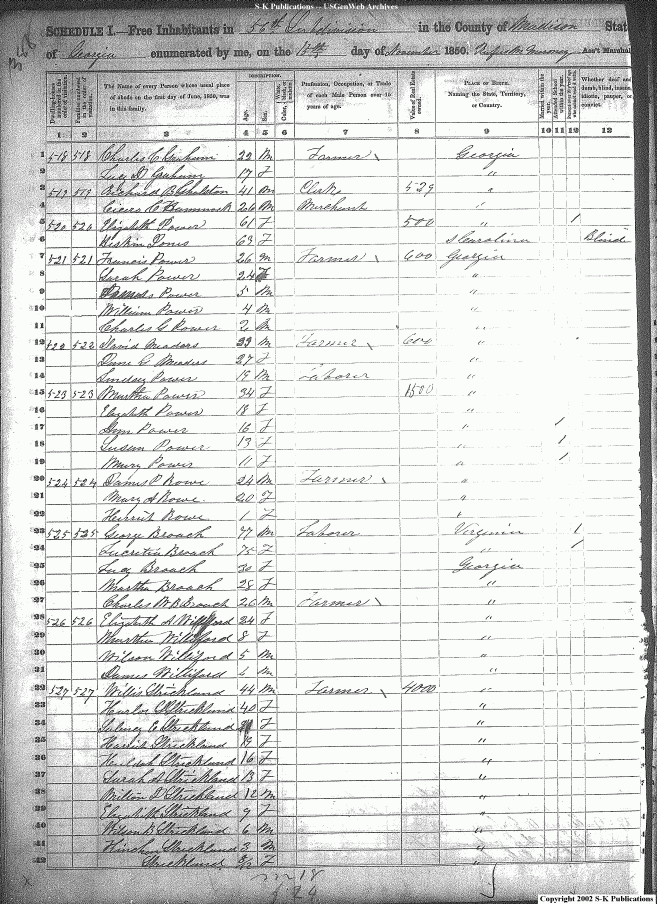 S-K Publications -- USGenWeb Archives
SCHEDULE I.—Free Inhabitants in 56th Subdivision in the County of Madison State
of Georgia enumerated by me, on the 18th day of November 1850. Ass't Marshal
DESCRIPTION.
Dwelling-houses numbered in the order of visitation.
Families numbered in the order of visitation.
The Name of every Person whose usual place of abode on the first day of June, 1850, was in this family.
Age.
Sex.
Color, White, black, or mulatto.
Profession, Occupation, or Trade of each Male Person over 15 years of age.
Value of Real Estate owned.
PLACE OF BIRTH. Naming the State, Territory, or Country.
Married within the year.
Attended School within the year.
Whether deaf and dumb, blind, insane, idiotic, pauper, or convict.
1 2 3 4 5 6 7 8 9 10 11 12
1 518 518 Charles C Graham 22 M Farmer Georgia
2 Lucy D Graham 17 F "
3 519 519 Richard B 41 M Clerk 529 "
4 Cicero C Hammock 26 M Merchant "
5 520 520 Elizabeth Power 61 F 500 " 1
6 63 F S Carolina Blind
7 521 521 Francis Power 26 M Farmer 600 Georgia
8 Sarah Power 24 F "
9 Power 5 M "
10 William Power 4 M "
11 Charles G Power 2 M "
12 522 522 David Meaders 33 M Farmer 600 "
13 Meaders 27 F "
14 Lindsey Power 19 M Laborer "
15 523 523 Martha Power 34 F 1500 "
16 Elizabeth Power 18 F "
17 Power 16 F " 1
18 Susan Power 13 F " 1
19 Mary Power 11 F " 1
20 524 524 James P Rowe 24 M Farmer "
21 Mary A Rowe 20 F "
22 Harriet Rowe 1 F "
23 525 525 George Broach 77 M Laborer Virginia 1
24 Lucretia Broach 75 F " 1
25 Lucy Broach 30 F Georgia
26 Martha Broach 28 F "
27 Charles W B Broach 20 M Farmer "
28 526 526 Elizabeth A Williford 24 F "
29 Martha Williford 8 F "
30 Wilson Williford 5 M "
31 James Williford M "
32 527 527 Willis Strickland 44 M Farmer 4000 "
33 Strickland 40 F "
34 Strickland F "
35 Harriet Strickland 19 F "
36 Strickland 16 F "
37 Sarah A Strickland 13 F "
38 Milton D Strickland 12 M "
39 Elizabeth Strickland 9 F "
40 Wilson B Strickland 6 M "
41 Strickland 3 M "
42 Strickland F "
M 18
F 24
Copyright 2002 S-K Publications